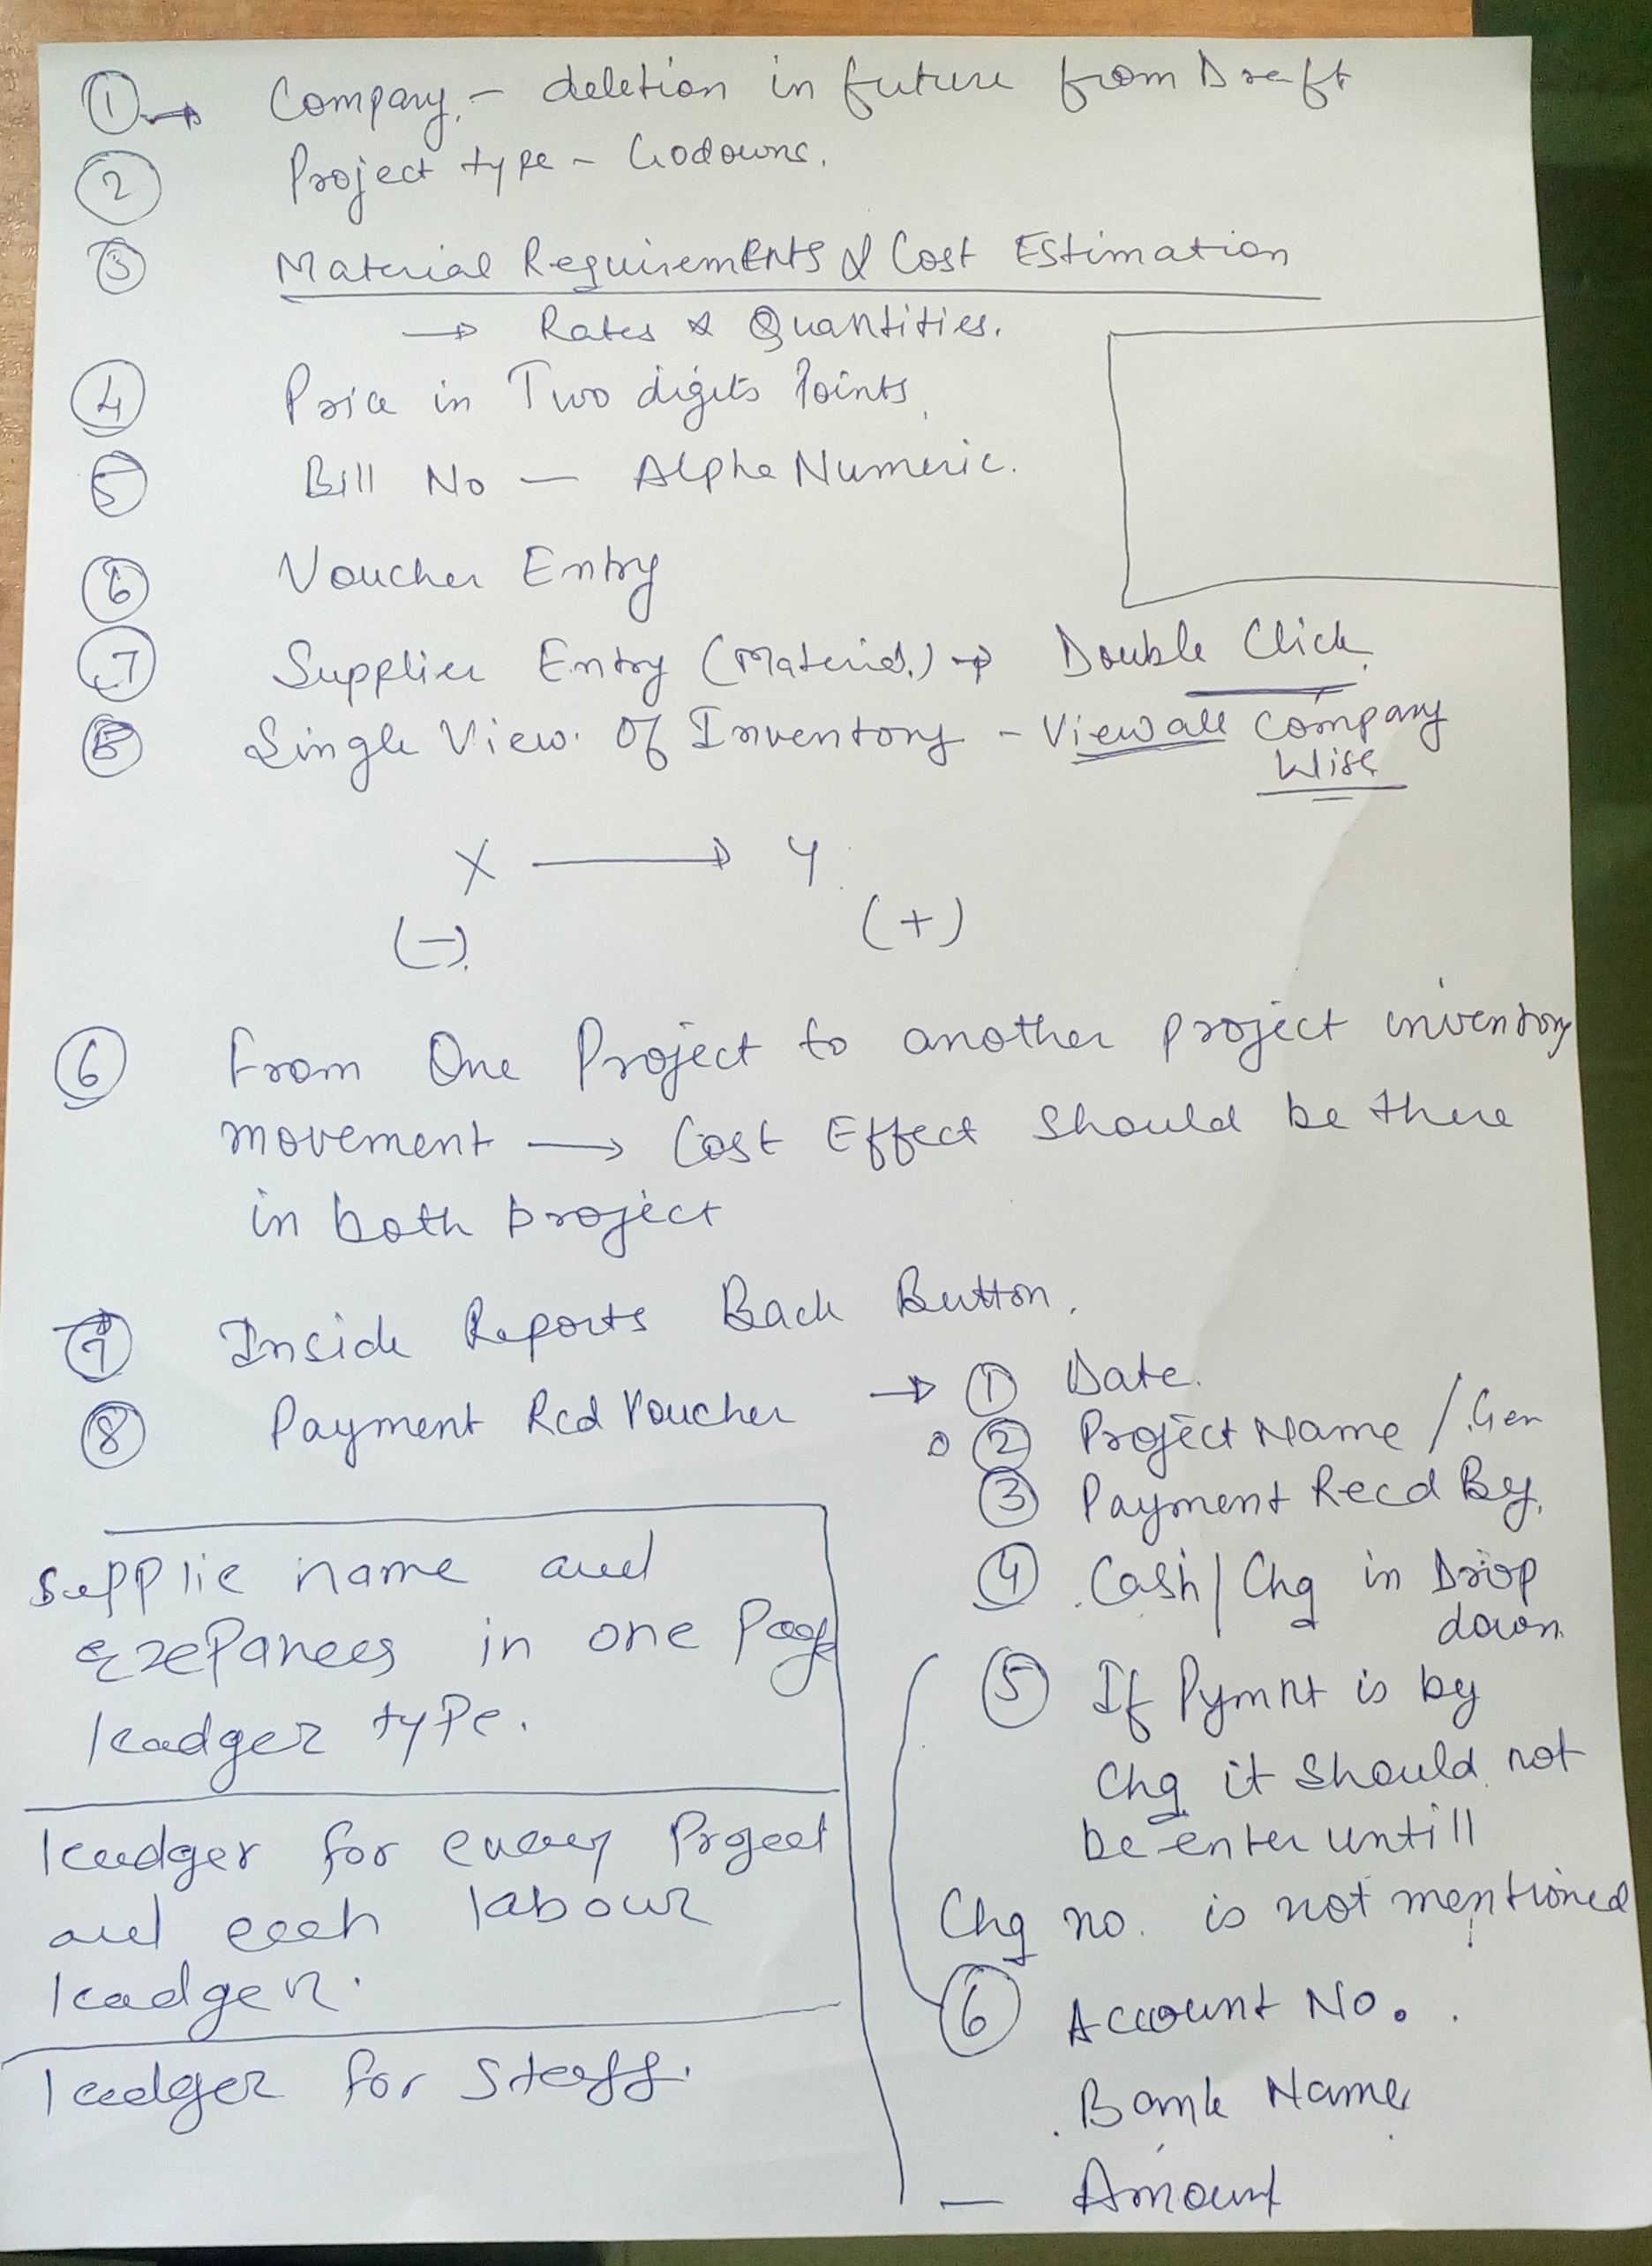 ① → Company, - deletion in future from Draft
② Project type - Godowns.
③ Material Requirements & Cost Estimation
→ Rates & Quantities.
④ Price in Two digits Points.
⑤ Bill No - Alpha Numeric.
⑥ Voucher Entry
⑦ Supplier Entry (Material.) → Double Click.
Single View. Of Inventory - View all Company
Wise
X → Y.
(-). (+)
⑥ From One Project to another project inventory
movement → Cost Effect should be there
in both project
⑦ Inside Reports Back Button.
⑧ Payment Rcd Voucher → ① Date.
② Project Name / Gen
③ Payment Recd By.
④ Cash / Chq in Drop
down.
⑤ If Pymnt is by
Chq it should not
be enter untill
Chq no. is not mentioned
⑥ Account No.
Bank Name
- Amount
Supplie name and
in one Page
leadger type.
leadger for every Project
and each labour
leadger.
leadger for Staff.